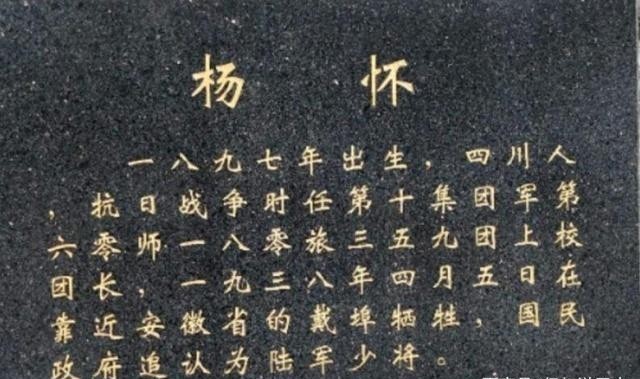 杨怀
一八九七年出生，四川人
，抗日战争时任第十五集团军第
六零师一八零旅三五九团上校
团长，一九三八年四月五日在
靠近安徽省的戴埠牺牲，国民
政府追认为陆军少将。